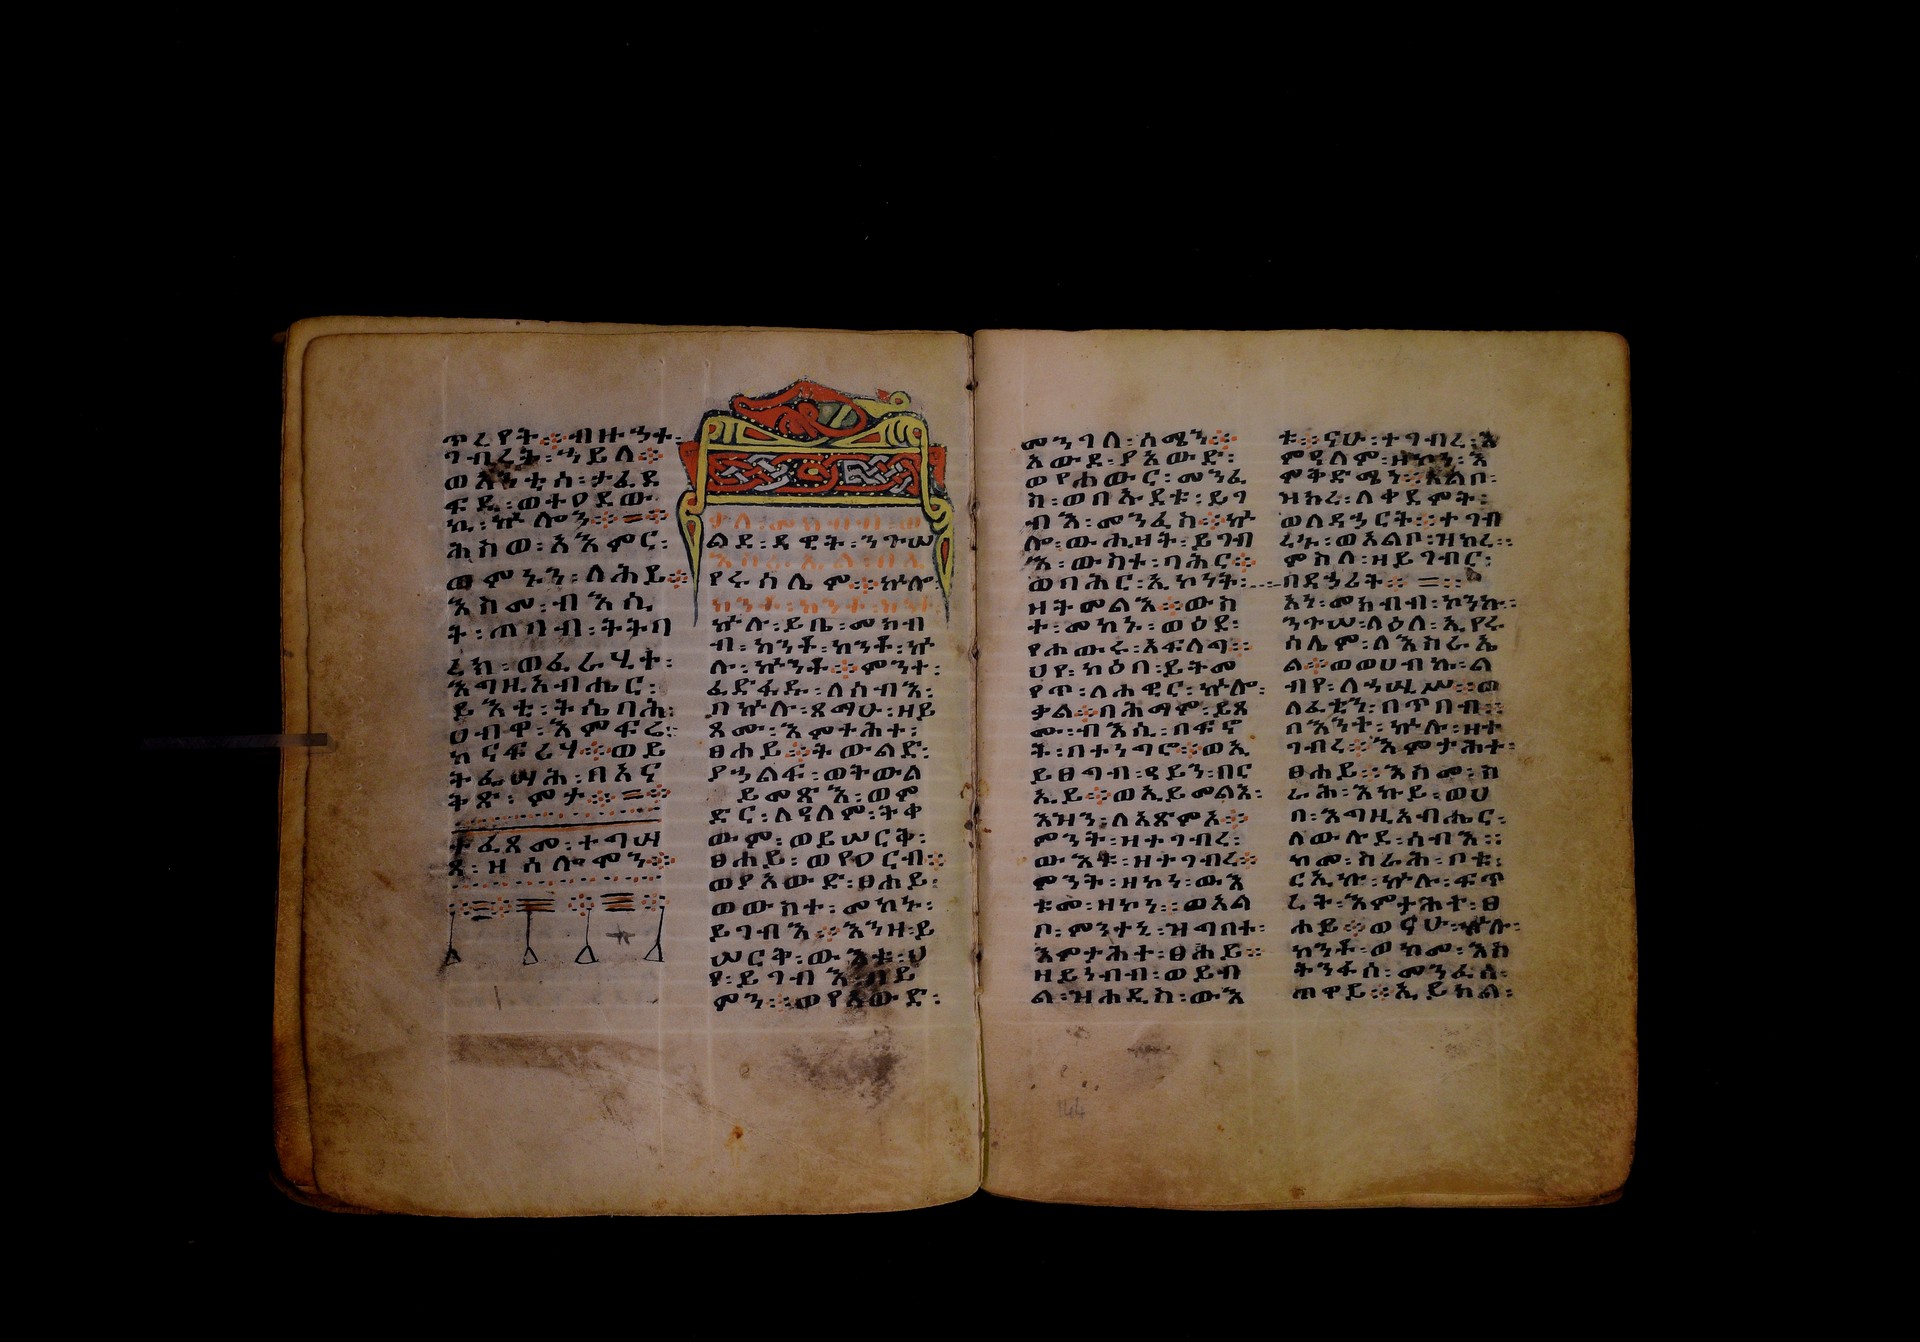 ጥረየት፨ብዙኅተ፡
ገብረት፡ኀይለ፨
ወአንቲሰ፡ታፈደ
ፍዲ፡ወተዐደው
ኪ፡ኵሎን፨=፨
ሕስወ፡አእምር፡
ወምኑን፡ለሕይ፨
እስመ፡ብእሲ
ት፡ጠባብ፡ትትባ
ረክ፡ወፈራሂተ፡
እግዚአብሔር፡
ይእቲ፡ትሴባሕ፡
ሀብዋ፡እምፍሬ፡
ከናፍሪሃ፨ወይ
ትፌሣሕ፡በአና
ትጽ፡ምታ፨=፨
ተፈጸመ፡ተግሣ
ጸ፡ዘሰሎሞን፨
ቃለ፡መክብብ፡ወ
ልደ፡ዳዊት፡ንጉሠ
እስራኤል፡በኢ
የሩሳሌም፨ኵሎ፡
ከንቶ፡ከንቶ፡ከንቶ፡
ኵሉ፡ይቤ፡መክብ
ብ፡ከንቶ፡ከንቶ፡ኵ
ሉ፡ከንቶ፨ምንተ፡
ፈድፋዱ፡ለሰብእ፡
በኵሉ፡ጻማሁ፡ዘይ
ጻሙ፡እምታሕተ፡
ፀሐይ፨ትውልድ፡
ያኃልፍ፡ወትውል
ይመጽእ፡ወም
ድር፡ለዓለም፡ትቀ
ውም፡ወይሠርቅ፡
ፀሐይ፡ወየዐርብ፨
ወያአውድ፡ፀሐይ፡
ወውስተ፡መካኑ፡
ይገብእ፨እንዘ፡ይ
ሠርቅ፡ውእቱ፡ህ
የ፡ይገብእ፡ለይ
ምን፨ወየአውድ፡
መንገለ፡ሰሜን፨
አውደ፡ያአውድ፡
ወየሐውር፡መንፈ
ስ፡ወበኡደቱ፡ይገ
ብእ፡መንፈስ፨ኵ
ሎ፡ውሒዛት፡ይገብ
እ፡ውስተ፡ባሕር፨
ወባሕር፡ኢኮነት፡
ዘትመልእ፨ውስ
ተ፡መካኑ፡ወዕደ፡
የሐውሩ፡አፍላግ፨
ህየ፡ከዕበ፡ይትመ
የጥ፡ለሐዊር፡ኵሎ፡
ቃል፨በሕማም፡ይጸ
ሙ፡ብእሲ፡በፍኖ
ት፡በተነግሮ፨ወኢ
ይፀግብ፡ዓይን፡በር
ኢይ፨ወኢይመልእ፡
እዝን፡ለአጽምኦ፨
ምንት፡ዝተገብረ፡
ውእቱ፡ዘተገብረ፨
ምንት፡ዘኮነ፡ውእ
ቱመ፡ዘኮነ፨ወአል
ቦ፡ምንተኒ፡ዝግበተ፡
እምታሕተ፡ፀሐይ፨
ዘይነብብ፡ወይብ
ል፡ዝሐዲስ፡ውእ
ቱ፨ናሁ፡ተገብረ፡እ
ምዓለም፡ዘኮነ፡እ
ምቅድሜነ፨አልቦ፡
ዝክረ፡ለቀደምት፡
ወለደኃርት፨ተገብ
ረሂ፡ወአልቦ፡ዝክረ፨
ምስለ፡ዘይገብር፡
በደኃሪት፨=፨
አነ፡መክብብ፡ኮንኩ፡
ንጉሠ፡ለዕለ፡ኢየሩ
ሳሌም፡ለእስራኤ
ል፨ወወሀብኩ፡ል
ብየ፡ለኃሢሥ፨ወ
ለፈቲን፡በጥበብ፨
በእንተ፡ኵሉ፡ዘተ
ገብረ፨እምታሕተ፡
ፀሐይ፨እስመ፡ስ
ራሕ፡እኩይ፡ወሀ
በ፡እግዚአብሔር፡
ለውሉደ፡ሰብእ፨
ከመ፡ስራሕ፡ቦቱ፡
ርኢኩ፡ኵሉ፡ፍጥ
ረት፡እምታሕተ፡ፀ
ሐይ፨ወናሁ፡ኵሉ፡
ከንቶ፡ወከመ፡እስ
ትንፋሰ፡መንፈስ፡
ጠዋይ፨ኢይክል፡
144